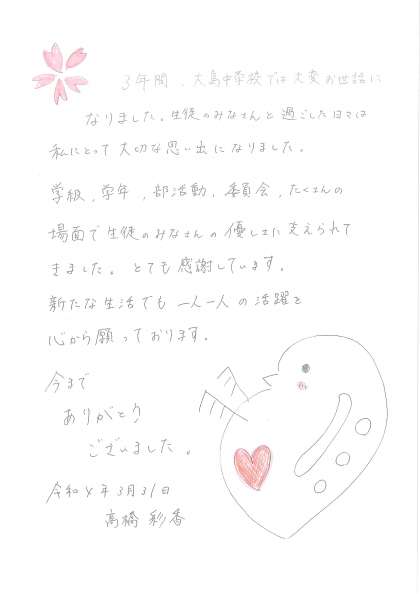 3年間、大島中学校では大変お世話に
なりました。生徒のみなさんと過ごした日々は
私にとって大切な思い出になりました。
学級、学年、部活動、委員会、たくさんの
場面で生徒のみなさんの優しさに支えられて
きました。とても感謝しています。
新たな生活でも一人一人の活躍を
心から願っております。
今まで
ありがとう
ございました。
令和4年3月31日
高橋 彩香